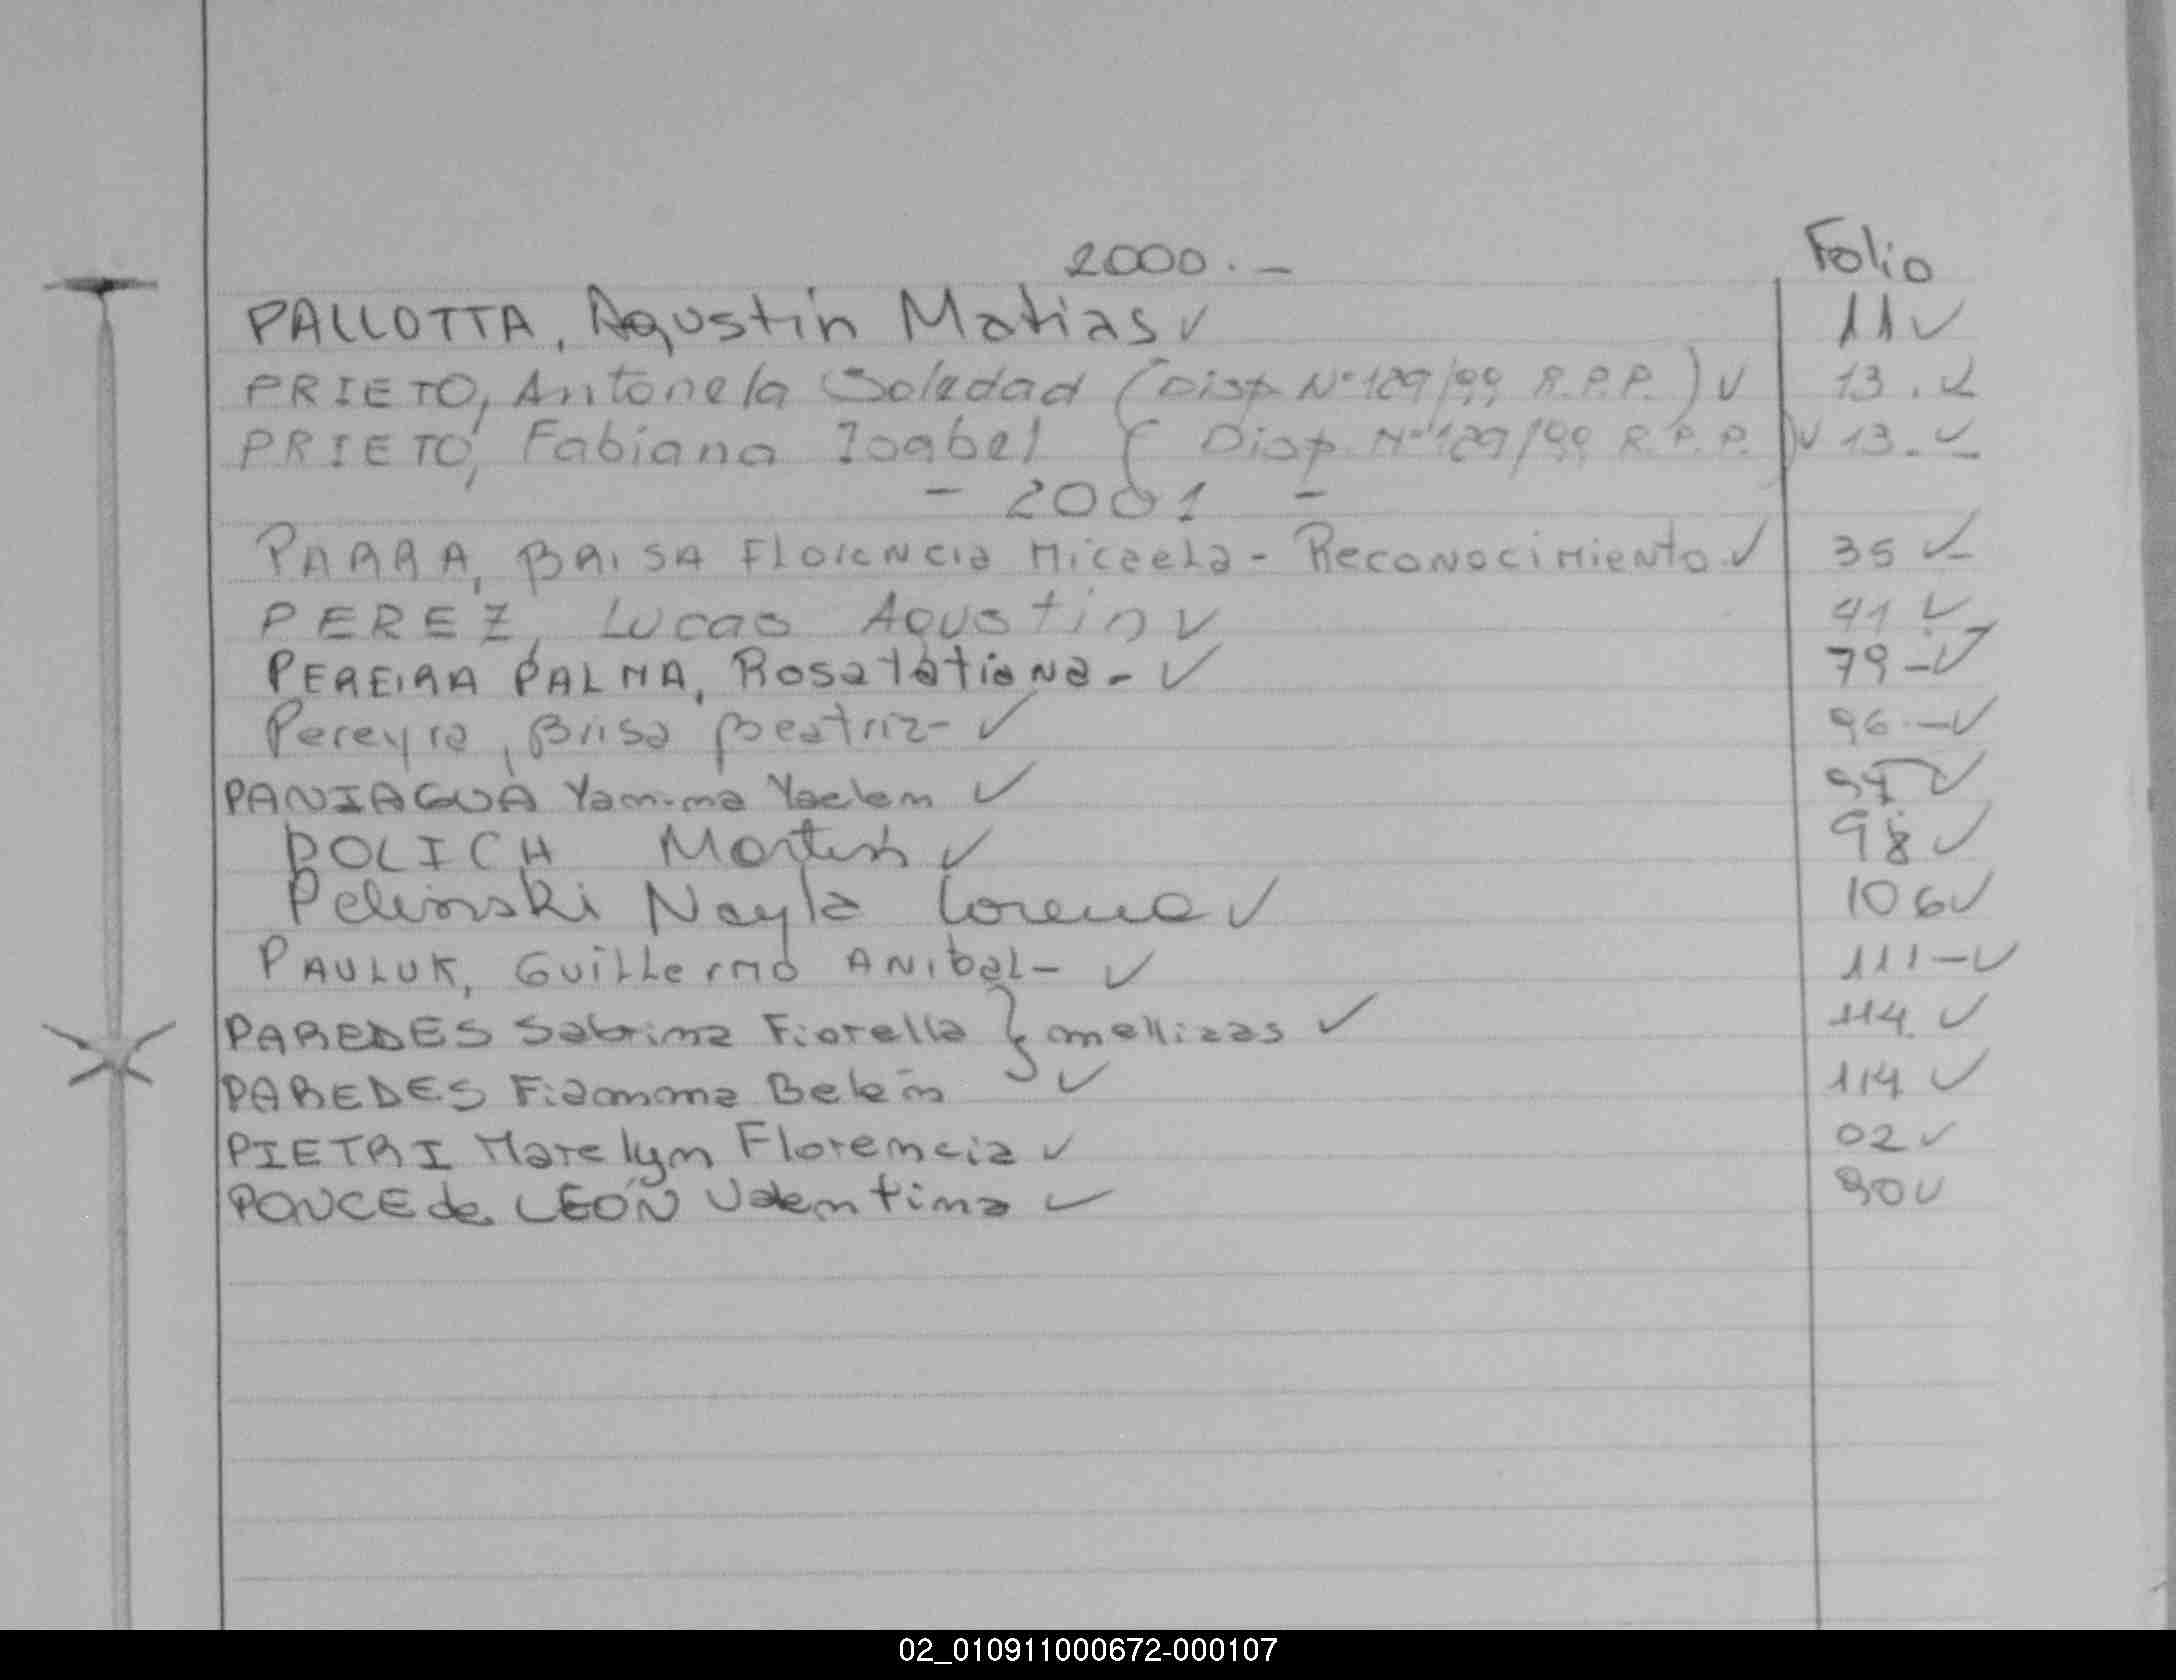 2000.-
Folio
PALLOTTA, Agustin Matias ✓ 11 ✓
PRIETO, Antonela Soledad (Disp N° 129/99 R.P.P.) ✓ 13. ✓
PRIETO, Fabiana Isabel (Disp. N° 129/99 R.P.P.) ✓ 13. ✓
- 2001 -
PARRA, BRISA Florencia Micaela - Reconocimiento. ✓ 35 ✓
PEREZ, Lucas Agustin ✓ 41 ✓
PEREIRA PALMA, Rosa Tatiana - ✓ 79 - ✓
Pereyra, Brisa Beatriz - ✓ 96. - ✓
PANIAGUA Yamima Yaelem ✓ 97 ✓
POLICH Martin ✓ 98 ✓
Pelinski Nayla Lorena ✓ 106 ✓
PAULUK, Guillermo ANibal - ✓ 111 - ✓
PAREDES Sabrina Fiorella } mellizas ✓ 114 ✓
PAREDES Fiamma Belén ✓ 114 ✓
PIETRI Marelym Florencia ✓ 02 ✓
PONCE de LEÓN Valentina ✓ 90 ✓
02_010911000672-000107